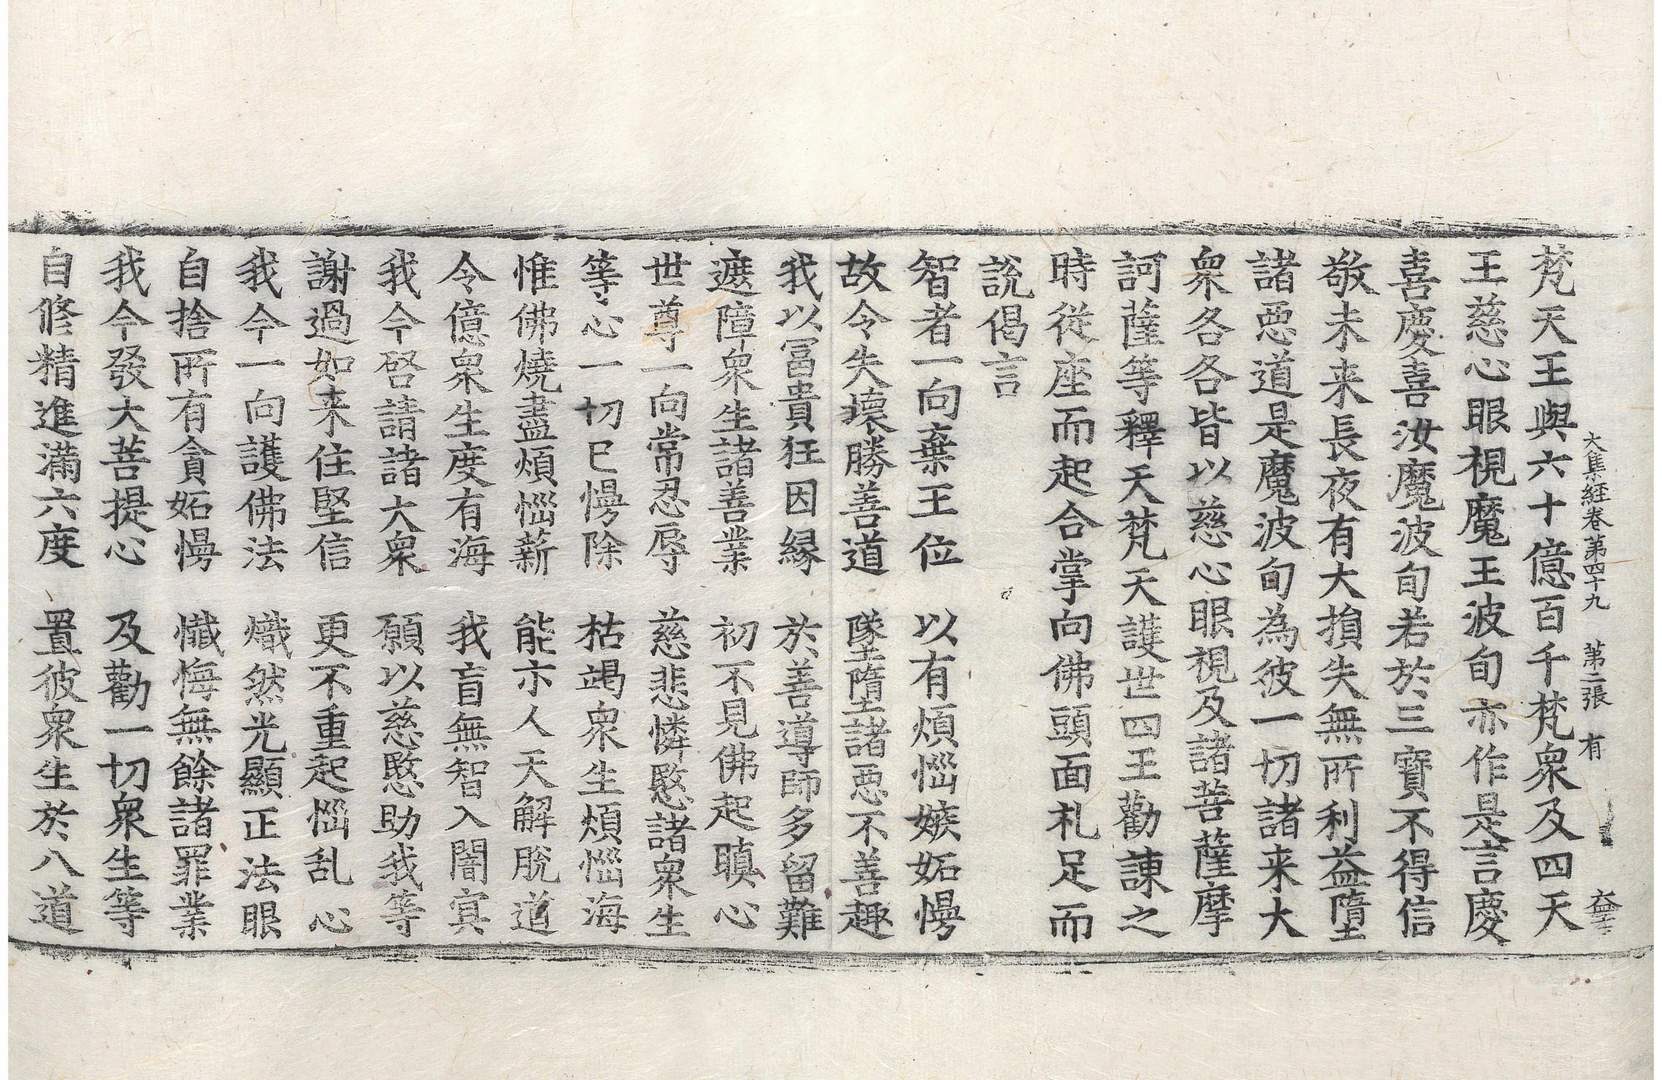 大集經卷第四十九 第二張 有
梵天王與六十億百千梵衆及四天
王慈心眼視魔王波旬亦作是言慶
喜慶喜汝魔波旬若於三寶不得信
敬未来長夜有大損失無所利益墮
諸惡道是魔波旬為彼一切諸来大
衆各各皆以慈心眼視及諸菩薩摩
訶薩等釋天梵天護世四王勸諌之
時從座而起合掌向佛頭面礼足而
說偈言
智者一向棄王位 以有煩惱嫉妬慢
故令失壞勝善道 墜墮諸惡不善趣
我以冨貴狂因縁 於善導師多留難
遮障衆生諸善業 初不見佛起瞋心
世尊一向常忍辱 慈悲憐愍諸衆生
等心一切已慢除 枯竭衆生煩惱海
惟佛燒盡煩惱薪 能示人天解脫道
令億衆生度有海 我盲無智入闇㝠
我今啓請諸大衆 願以慈愍助我等
謝過如来住堅信 更不重起惱乱心
我今一向護佛法 熾然光顯正法眼
自捨所有貪妬慢 懺悔無餘諸罪業
我今發大菩提心 及勸一切衆生等
自修精進滿六度 置彼衆生於八道